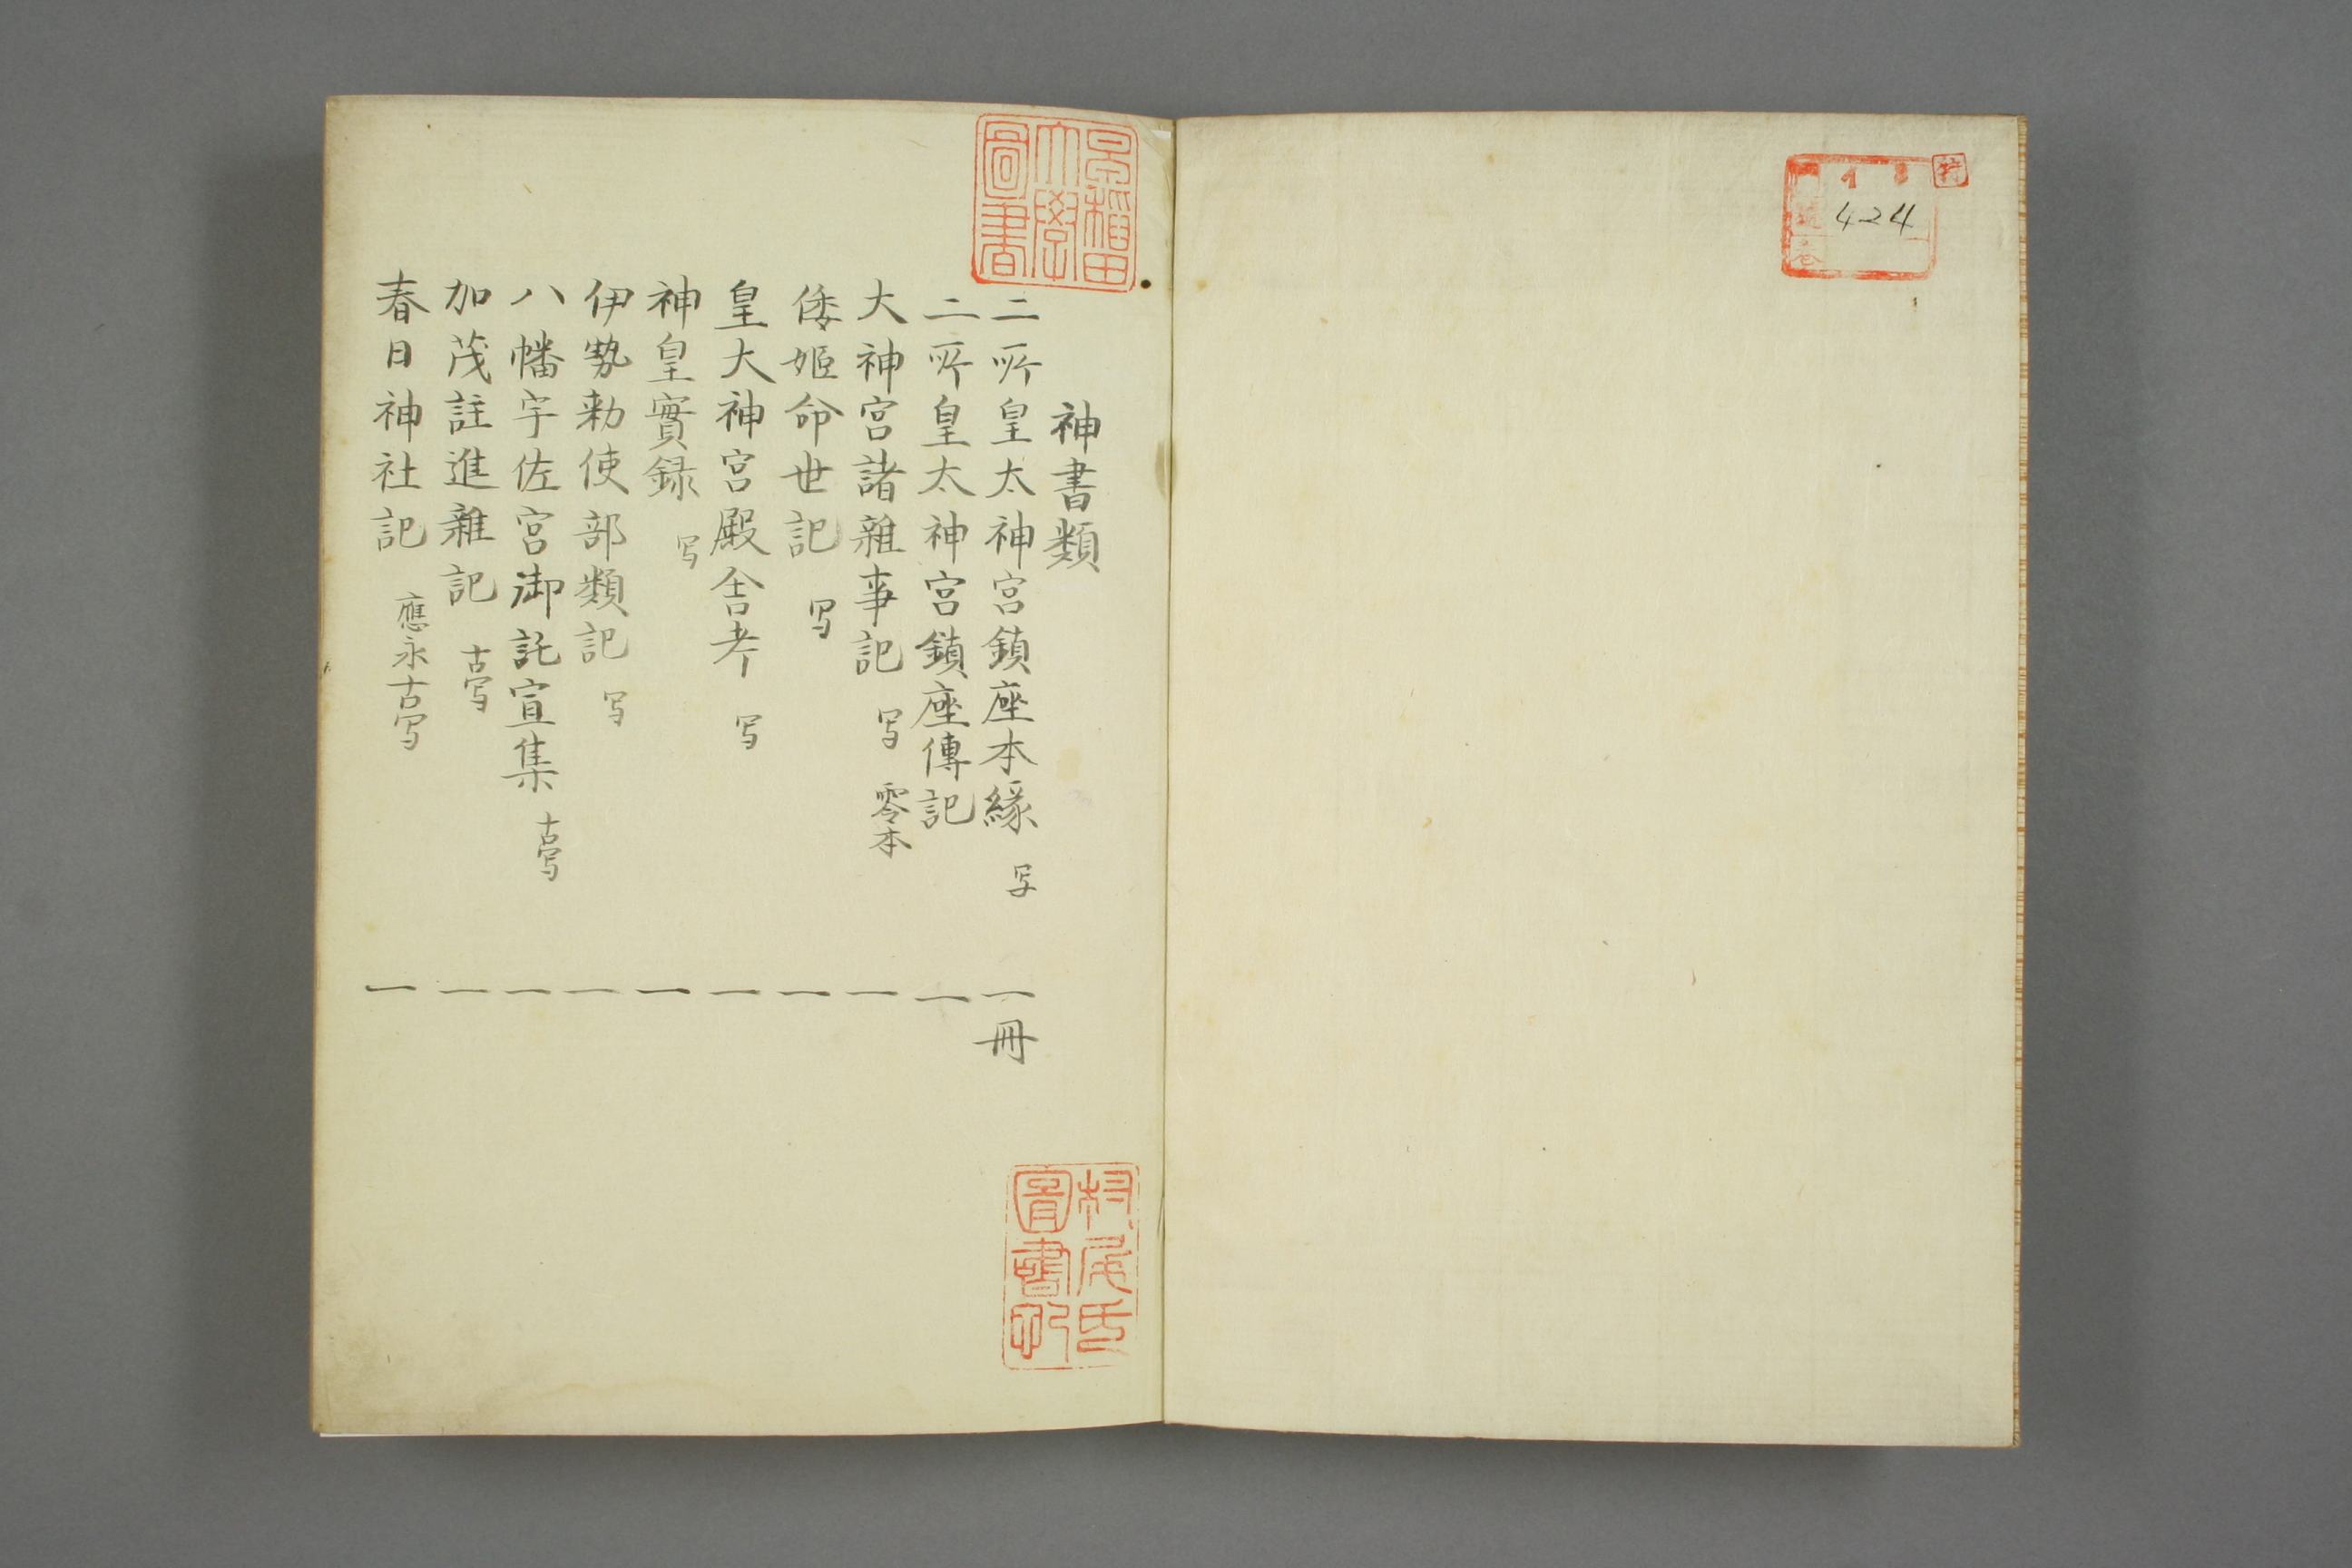 特
424
早稲田
大學
圖書
神書類
二所皇太神宮鎮座本縁 写 一冊
二所皇太神宮鎮座傳記 一
大神宮諸雜事記 写 零本 一
倭姫命世記 写 一
皇大神宮殿舎考 写 一
神皇實録 写 一
伊勢勅使部類記 写 一
八幡宇佐宮御託宣集 古写 一
加茂註進雜記 古写 一
春日神社記 應永古写 一
村尾氏
圖書印